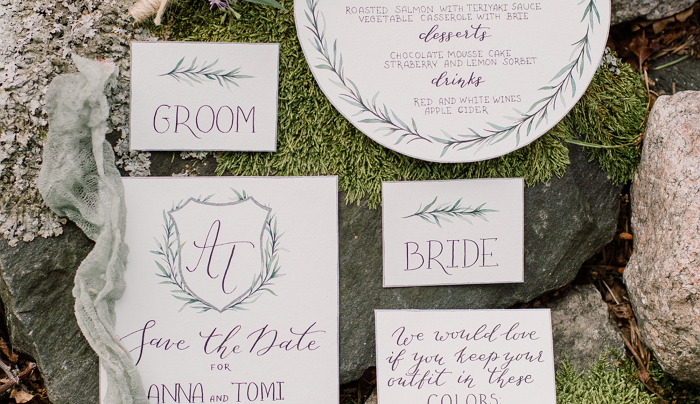 ROASTED SALMON WITH TERIYAKI SAUCE
VEGETABLE CASSEROLE WITH BRIE
desserts
CHOCOLATE MOUSSE CAKE
STRABERRY AND LEMON SORBET
drinks
RED AND WHITE WINES
APPLE CIDER
GROOM
BRIDE
AT
Save the Date
FOR
ANNA AND TOMI
We would love
if you keep your
outfit in these
COLORS: